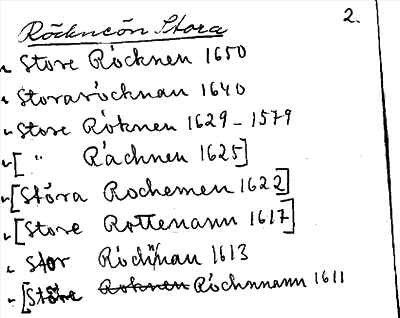 2.
Röckncön Stora
" Store Röcknen 1650
" Storaröcknan 1640
" Store Röknen 1629 - 1579
" [ " Råchnen 1625]
" [Stora Rochemen 1622]
" [Store Rottemann 1617]
" Stor Röchnan 1613
" [Store Röchnmann 1611